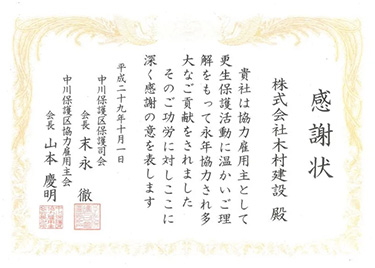 感謝状
株式会社木村建設 殿
貴社は協力雇用主として
更生保護活動に温かいご理
解をもって永年協力され多
大なご貢献をされました
そのご功労に対しここに
深く感謝の意を表します
平成二十九年十月一日
中川保護区保護司会
会長 末永 徹
中川保護区協力雇用主会
会長 山本 慶明